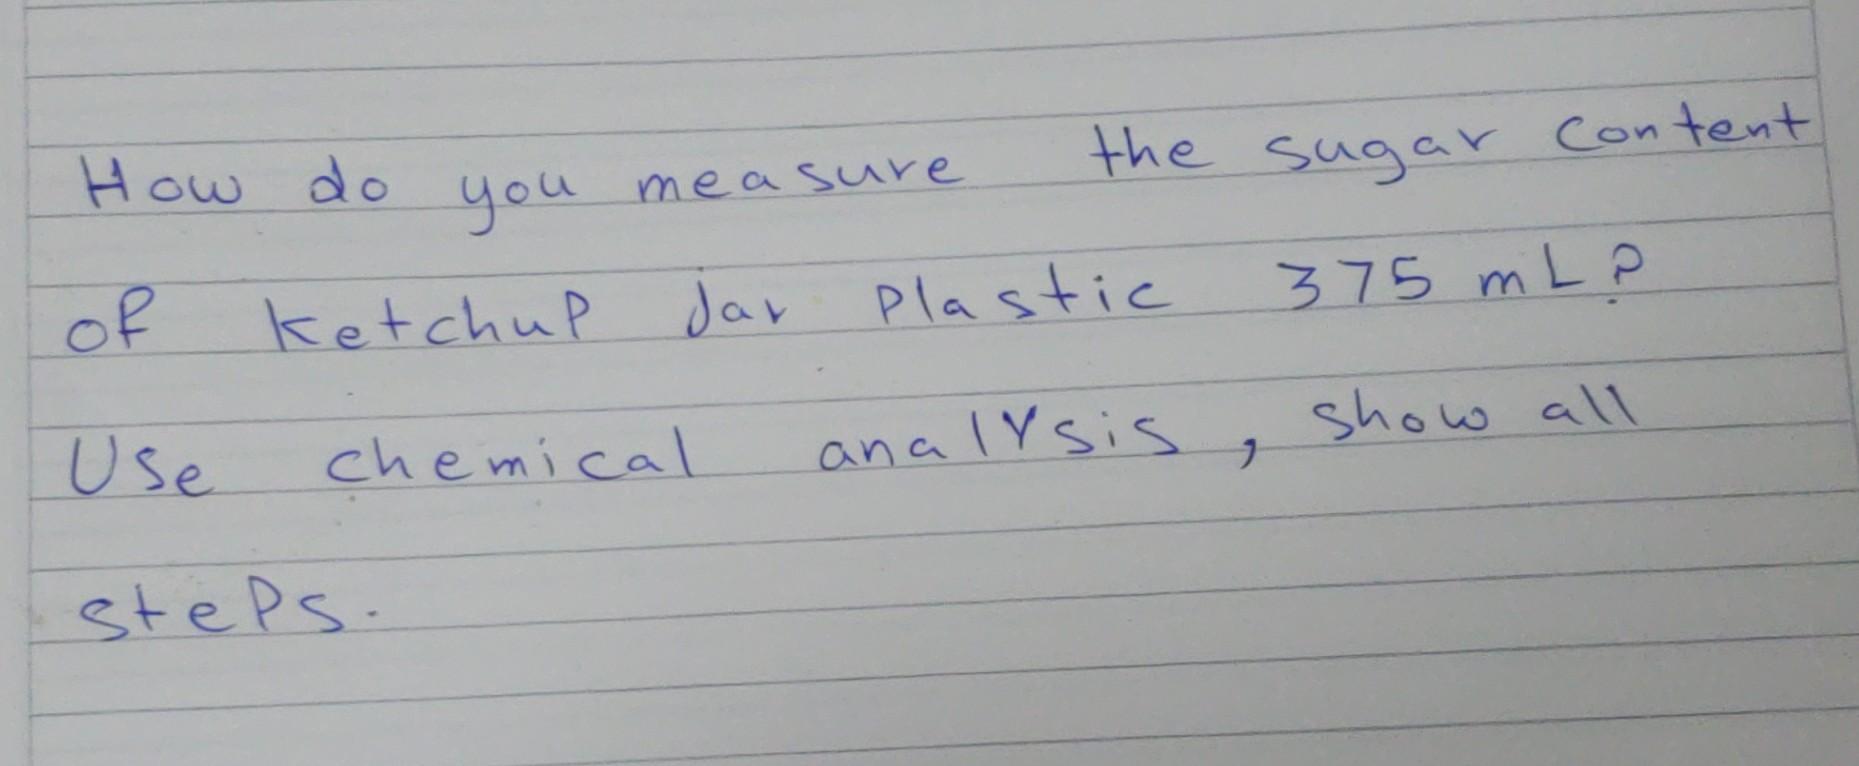 How do you measure the sugar content
of ketchup Jar Plastic 375 mL?
Use chemical analysis, show all
steps.